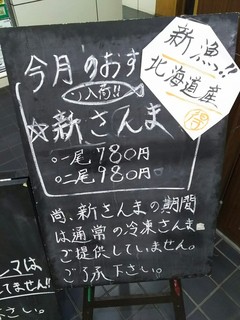 今月のおす
入荷!!
☆新さんま
○一尾780円
○二尾980円
尚、新さんまの期間
は通常の冷凍さんま
ご提供していません。
ご了承下さい。
新漁!!
北海道産
マは
せん!!
さい。